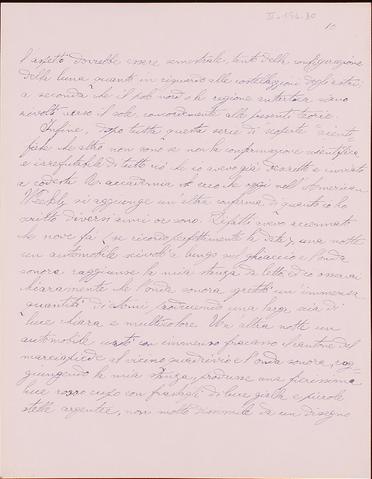 II-194-80
10
l'aspetto dovrebbe essere semestrale, tanto della configurazione
della luna quanto in riguardo alle costellazioni degli astri,
a seconda che il polo nord o la regione antartica siano
rivolti verso il sole, concordemente alle presenti teorie.
Infine, dopo tutta questa serie di scoperte scienti-
fiche che altro non sono se non la confirmazione scientifica
e irrefutabile di tutto ciò che io avevo già descritto e inviato
a codeste R. accademia, ecco che oggi nell'American
Weekly si aggiunge un'altra conferma di quanto io ho
scritto diversi anni or sono. Difatti avevo accennato
che nove fa (se ricordo perfettamente la data), una notte
un automobile scivolò a lungo sul ghiaccio e l'onda
sonora raggiunse la mia stanza da letto ed io osservai
chiaramente che l'onda sonora gettò un'immensa
quantità di atomi producendo una larga scia di
luce chiara e multicolore. Un'altra notte un
automobile urtò con immenso fracasso il cantone del
marciapiede al vicino quadrivio e l'onda sonora, rag-
giungendo la mia stanza, produsse una
luce rosso cupo con frangli di luce gialla e piccole
stelle argentee, non molto dissimile da un disegno